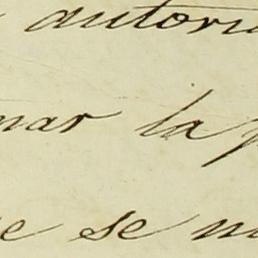 autori
mar la p
e se no